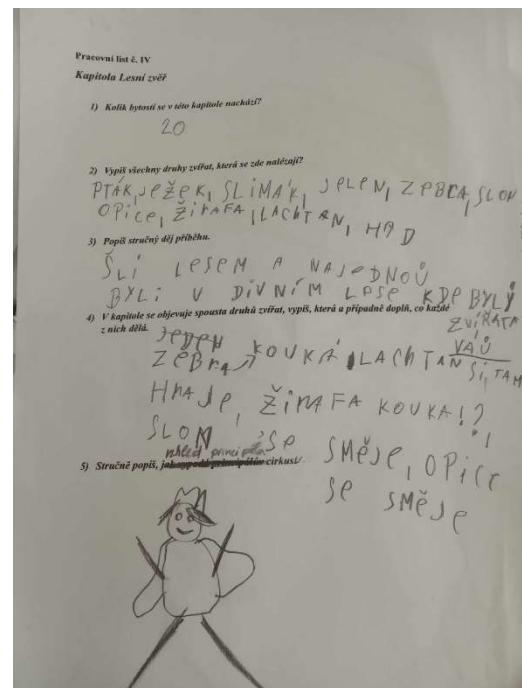 Pracovní list č. IV
Kapitola Lesní zvěř
1) Kolik bytostí se v této kapitole nachází?
20
2) Vypiš všechny druhy zvířat, která se zde nalézají?
PTÁK, JEŽEK, SLIMÁK, JELEN, ZEBRA, SLON
OPICE, ŽIRAFA, LACHTAN, HAD
3) Popiš stručný děj příběhu.
ŠLI LESEM A NAJEDNOÚ
BYLI V DIVNÍM LESE KDE BYLY
ZVÍŘATA
4) V kapitole se objevuje spousta druhů zvířat, vypiš, která a případně doplň, co každé
z nich dělá.
JEDEN VAŮ
ZEBRA KOUKÁ, LACHTAN SI TAM
HRAJE, ŽIRAFA KOUKA!?!
SLON SE SMĚJE, OPICE
SE SMĚJE
5) Stručně popiš, vzhled principála cirkusu.